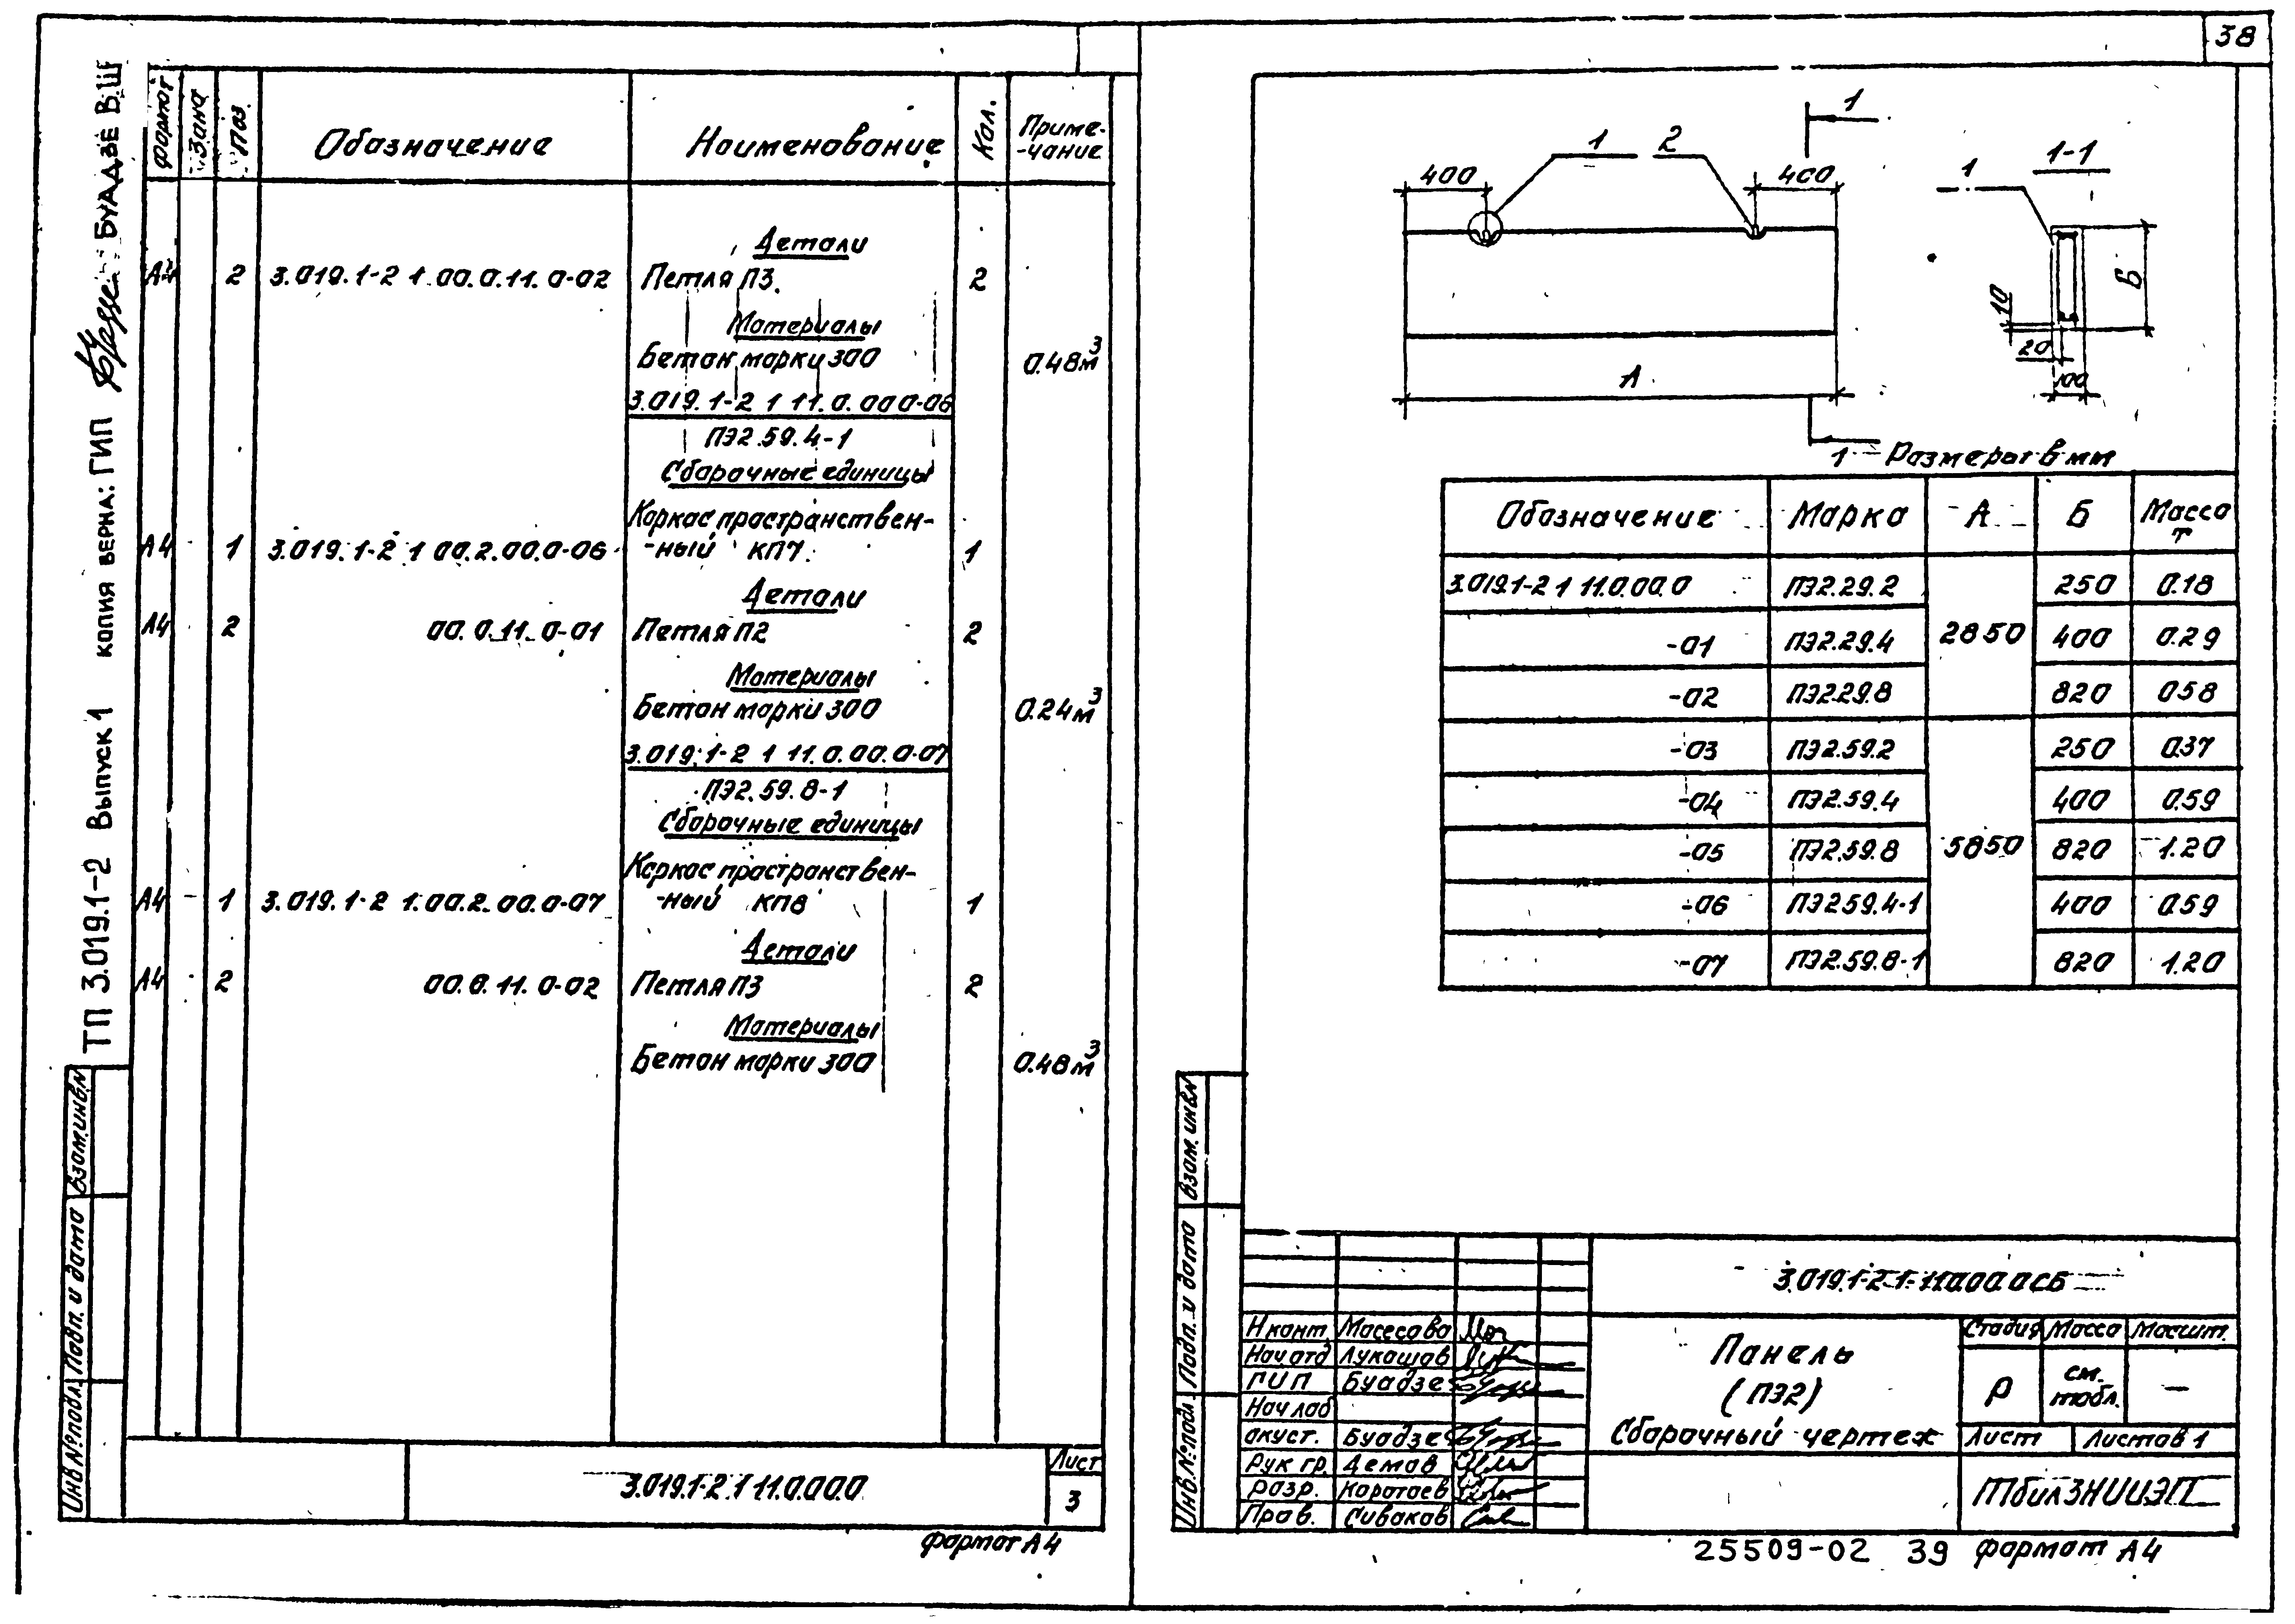 38
ТП 3.019.1-2 Выпуск 1 копия верна: ГИП БУАДЗЕ В.Ш
Формат Зона Поз. Обозначение Наименование Кол. Приме-
-чание
Детали
А4 2 3.019.1-2 1.00.0.11.0-02 Петля П3. 2
Материалы
Бетон марки 300 0.48м³
3.019.1-2 1 11.0.000-06
ПЭ2.59.4-1
Сборочные единицы
Каркас пространствен-
А4 1 3.019.1-2 1 00.2.00.0-06 -ный КП7 1
Детали
А4 2 00.0.11.0-01 Петля П2 2
Материалы
Бетон марки 300 0.24м³
3.019.1-2 1 11.0.00.0-07
ПЭ2.59.8-1
Сборочные единицы
Каркас пространствен-
А4 1 3.019.1-2 1.00.2.00.0-07 -ный КП8 1
Детали
А4 2 00.0.11.0-02 Петля П3 2
Материалы
Бетон марки 300 0.48м³
Инв.№подл. Подп. и дата Взам.инв.№
3.019.1-2 1 11.0.00.0
Лист
3
Формат А4
1
1 2 1-1
400 400 1
Б
10
20
100
А
1 Размеры в мм
Обозначение Марка А Б Масса
т
3.019.1-2 1 11.0.00.0 ПЭ2.29.2 2850 250 0.18
-01 ПЭ2.29.4 400 0.29
-02 ПЭ2.29.8 820 0.58
-03 ПЭ2.59.2 5850 250 0.37
-04 ПЭ2.59.4 400 0.59
-05 ПЭ2.59.8 820 1.20
-06 ПЭ2.59.4-1 400 0.59
-07 ПЭ2.59.8-1 820 1.20
Инв.№подл. Подп. и дата Взам.инв.№
3.019.1-2 1-11.0.00.0СБ
Н.конт Масесова
Нач отд Лукашов
ГИП Буадзе
Нач лаб
акуст. Буадзе
Рук гр. Демов
Разр. Каратаев
Пров. Сиваков
Панель
(ПЭ2)
Сборочный чертеж
Стадия Масса Масшт.
Р см. табл. —
Лист Листов 1
ТбилЗНИИЭП
25509-02 39 Формат А4